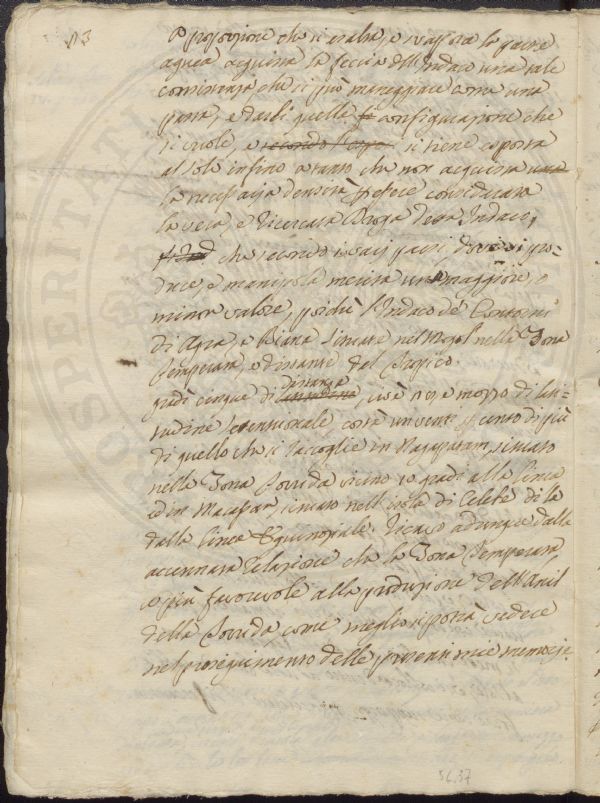 113
A proporzione che si esala, e svapora la parte
aquea acquista la feccia dell'Indaco una tale
consistenza che si può maneggiare come una
pasta, e darli quella configurazione che
si vuole, e secondo l'uso si tiene esposta
al sole infino a tanto che non acquista una
la necessaria densità per essere considerata
la vera, e ricercata Droga detta Indaco,
che secondo i varj paesi, dove si pro-
duce, e manipola merita un maggiore, o
minor valore, poichè l'Indaco de' Contorni
di Agra, e Biana situate nel Mogol nella Zona
Temperata, e distante del Tropico
gradi cinque di distanza, cioè 28 e mezzo di lati-
tudine settentrionale costa un venti per cento di più
di quello che si raccoglie in Nagapatam, situato
nella Zona Torrida vicino 10 gradi alla linea
ed in Macassar, situato nell'isola di Celebe di là
dalla linea Equinoziale. Ricavo adunque dalla
accennata Relazione che la Zona Temperata,
è più favorevole alla produzione dell'Anil
della Torrida come meglio si potrà vedere
nel proseguimento delle presenti mie memorie.
56.37